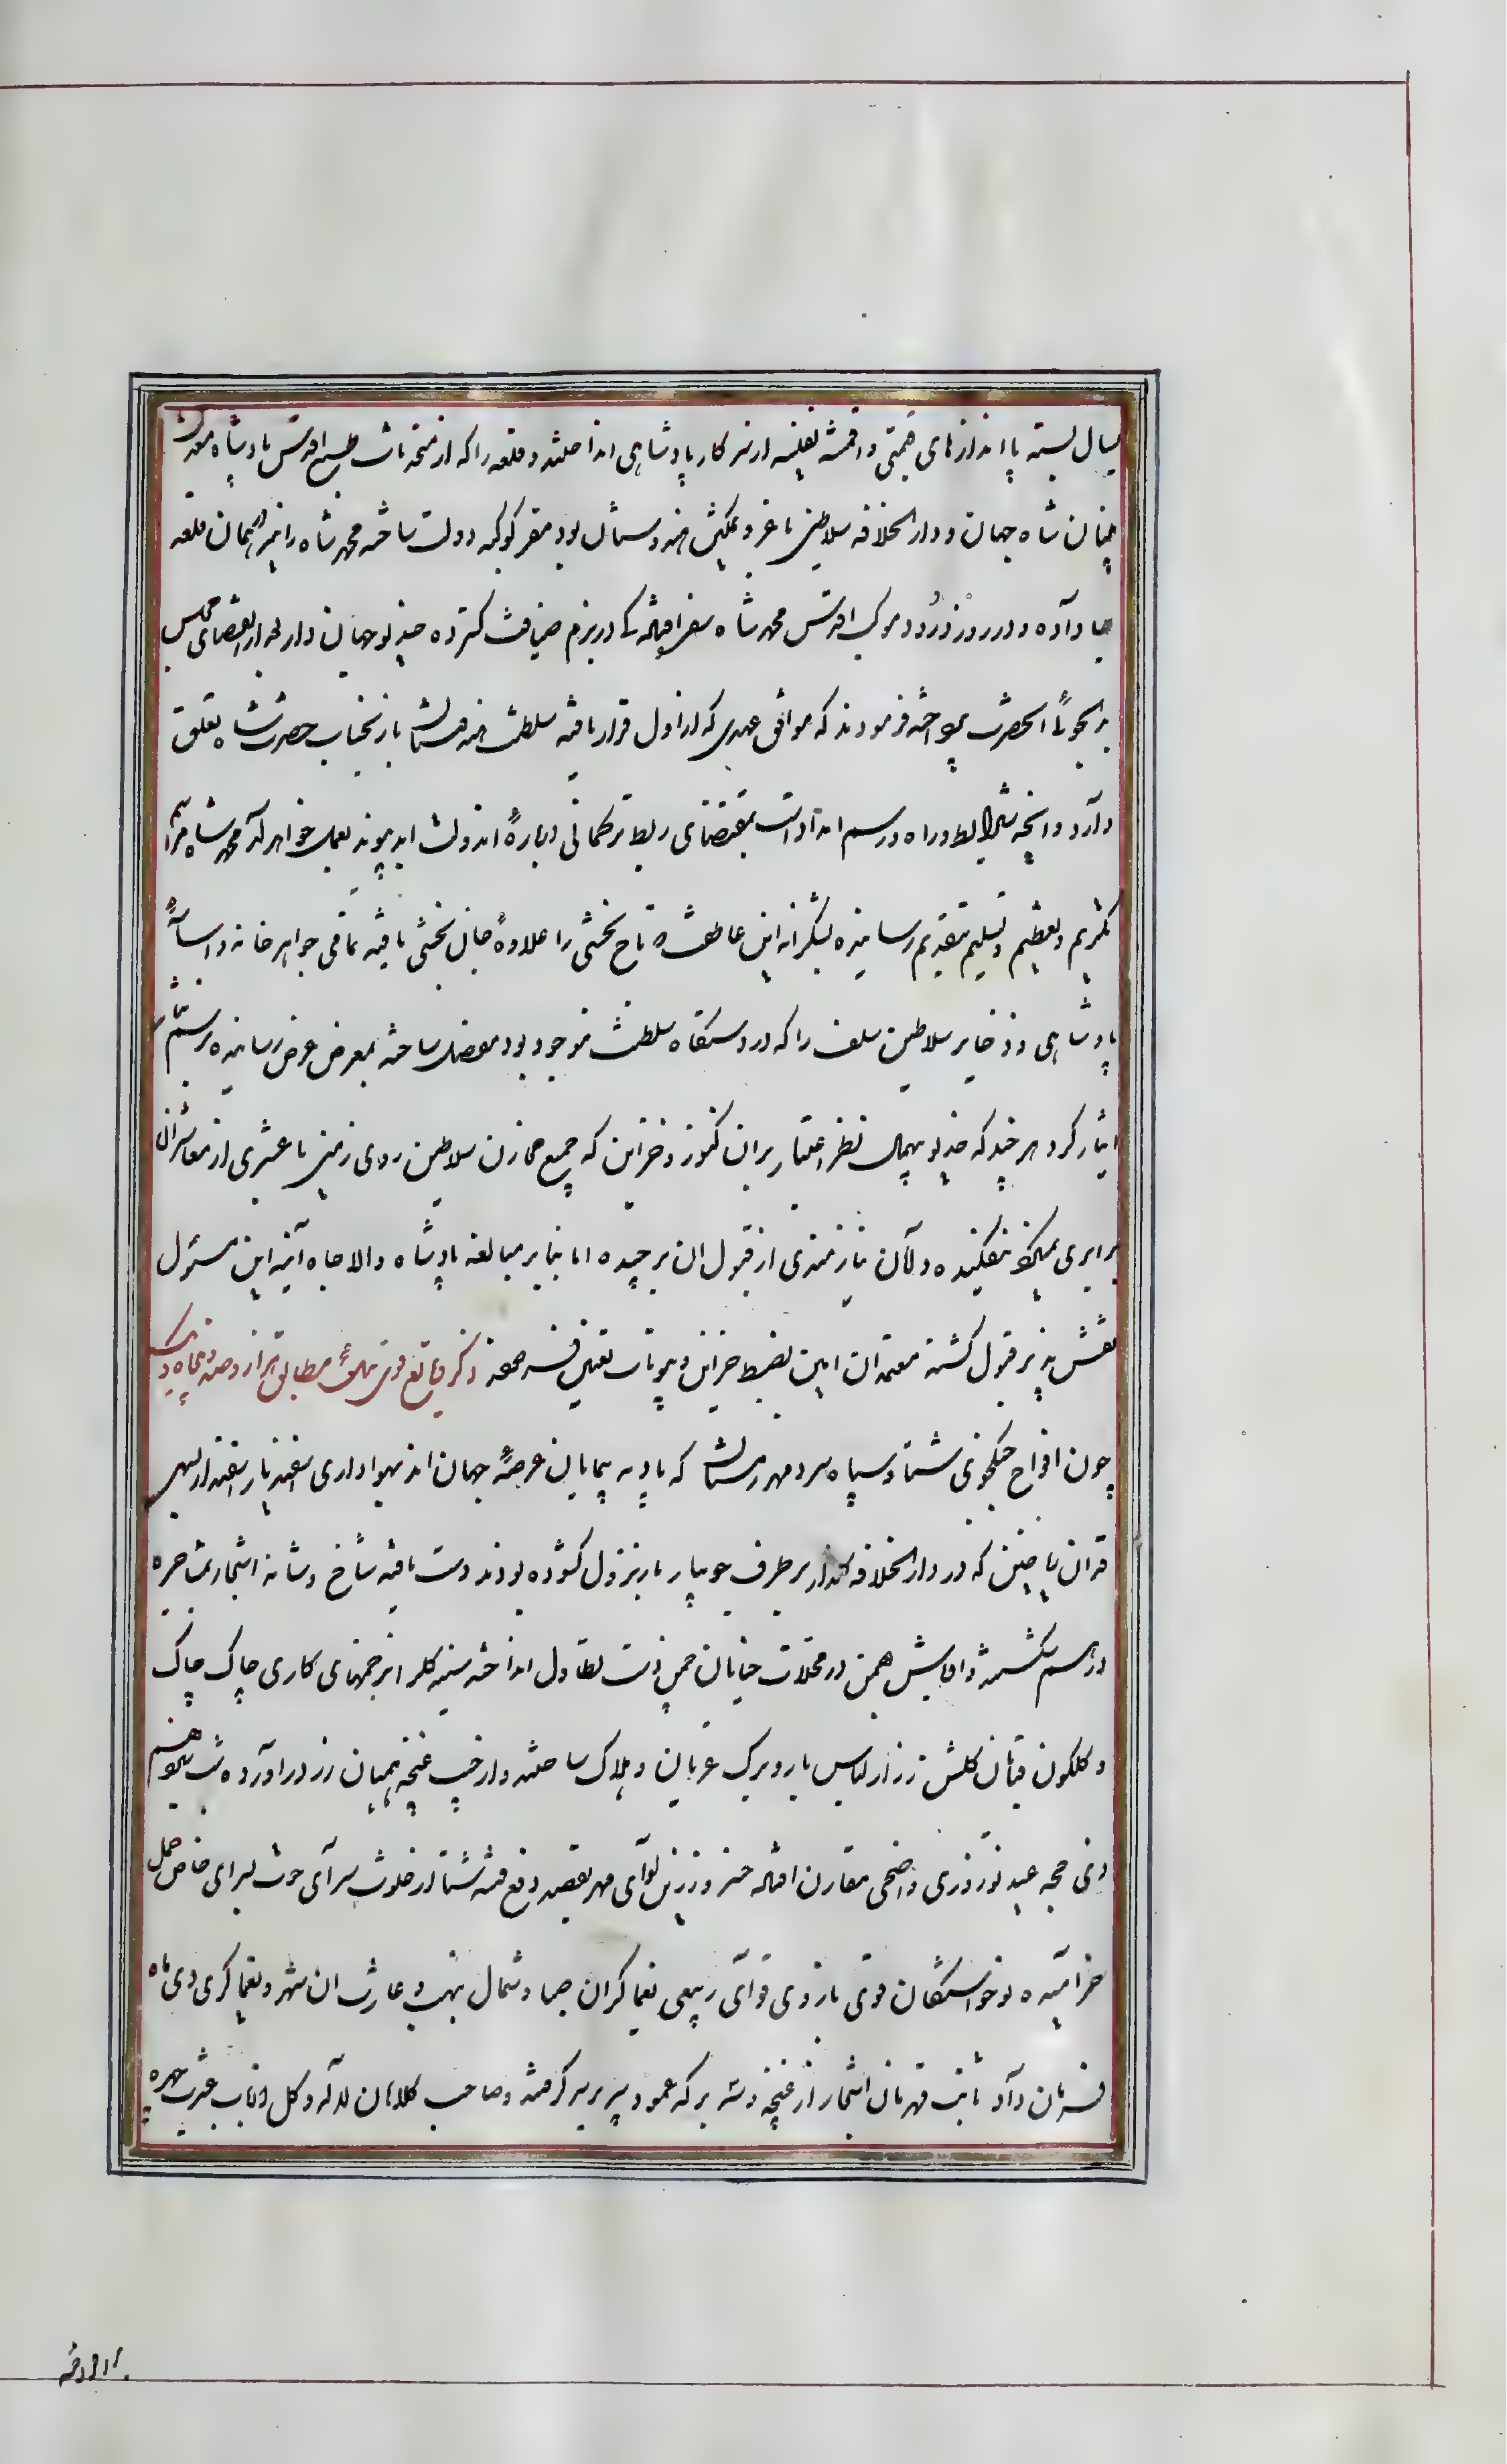 یسال بسته پا اندازهای قیمتی و اقمشه نفیسه از سرکار پادشاهی انداختند و قلعه را که از منتخبات طبع اقدس پادشاه مغفرت
بنیان شاه جهان و دار الخلافه سلاطین با عز و تمکین هندوستان بود مقر کوکبه دولت ساخته محمد شاه را نیز در همان قلعه
جا داده و در روز ورود موکب اقدس محمد شاه سفره در بزم ضیافت گسترده خدیو جهان دار بعد از انقضای مجلس
بدلجوئی آنحضرت پرداخته فرمودند که موافق عهدی که از اول قرار یافته سلطنت هندوستان باز بجناب حضرت شاه تعلق
دارد و آنچه شرایط و راه و رسم امداد است بمقتضای ربط ترکمانی درباره آن دولت ابد پیوند بعمل خواهد آمد محمد شاه مراسم
تکریم و تعظیم و تسلیم بتقدیم رسانیده بشکرانه این عاطفت که تاج بخشی را علاوهٔ جان بخشی یافته تمامی جواهر خانه و اساسهٔ
پادشاهی و ذخایر سلاطین سلف را که در دستگاه سلطنت موجود بود مفصل ساخته بمعرض عرض رسانیده برسم نثار
ایثار کرد هر چند که خدیو بیهمال نظر اعتبار بر آن کنوز و خزاین که جمیع مخازن سلاطین روی زمین با عشری از معاشر آن
برابری نمیکرد نیفکنده دامان نیازمندی از قبول آن برچیده اما بنابر مبالغه پادشاه والا جاه آینه این مسئول
نقش پذیر قبول گشته معتمدان امین بضبط خزاین و بیوتات تعیین فرمودند ذکر وقایع قوی ئیل مطابق هزار و صد و پنجاه و یک
چون افواج جنگجوی شتا و سپاه سرد مهر زمستان که بادیه پیمایان عرصهٔ جهان اند بهواداری اسفندیار اسفندار بهمن
قدان ریاحین که در دار الخلافه گلزار بر طرف جویبار بار نزول گشوده بودند دست یافته شاخ و شانه اشجار بشاجره
در هم شکستند و اوباش بهمن در محلات خیابان چمن دست تطاول انداخته سینه گلرا از زخمهای کاری چاک چاک
و گلگون قبایان گلشن زر از لباس بار و برگ عریان و هلاک ساختند و از جیب غنچه همیان زر در آوردند شب نهم
ذی حجه عید نوروزی و اضحی مقارن افتاد خسرو زرین لوای مهر بقصد دفع فتنه شتا از خلوت سرای حوت بسرای خاص حمل
خرامیده نوخواستگان قوی بازوی قوای ربیعی یغماگران صبا و شمال بنهب و غارت آن شهر و یغماگری دی ماه
فرمان داد تا بت قهرمان اشجار از غنچه دسته برگه عمود بر سر گرفته و صاحب کلاهان لاله و گل اسباب عشرت چهره